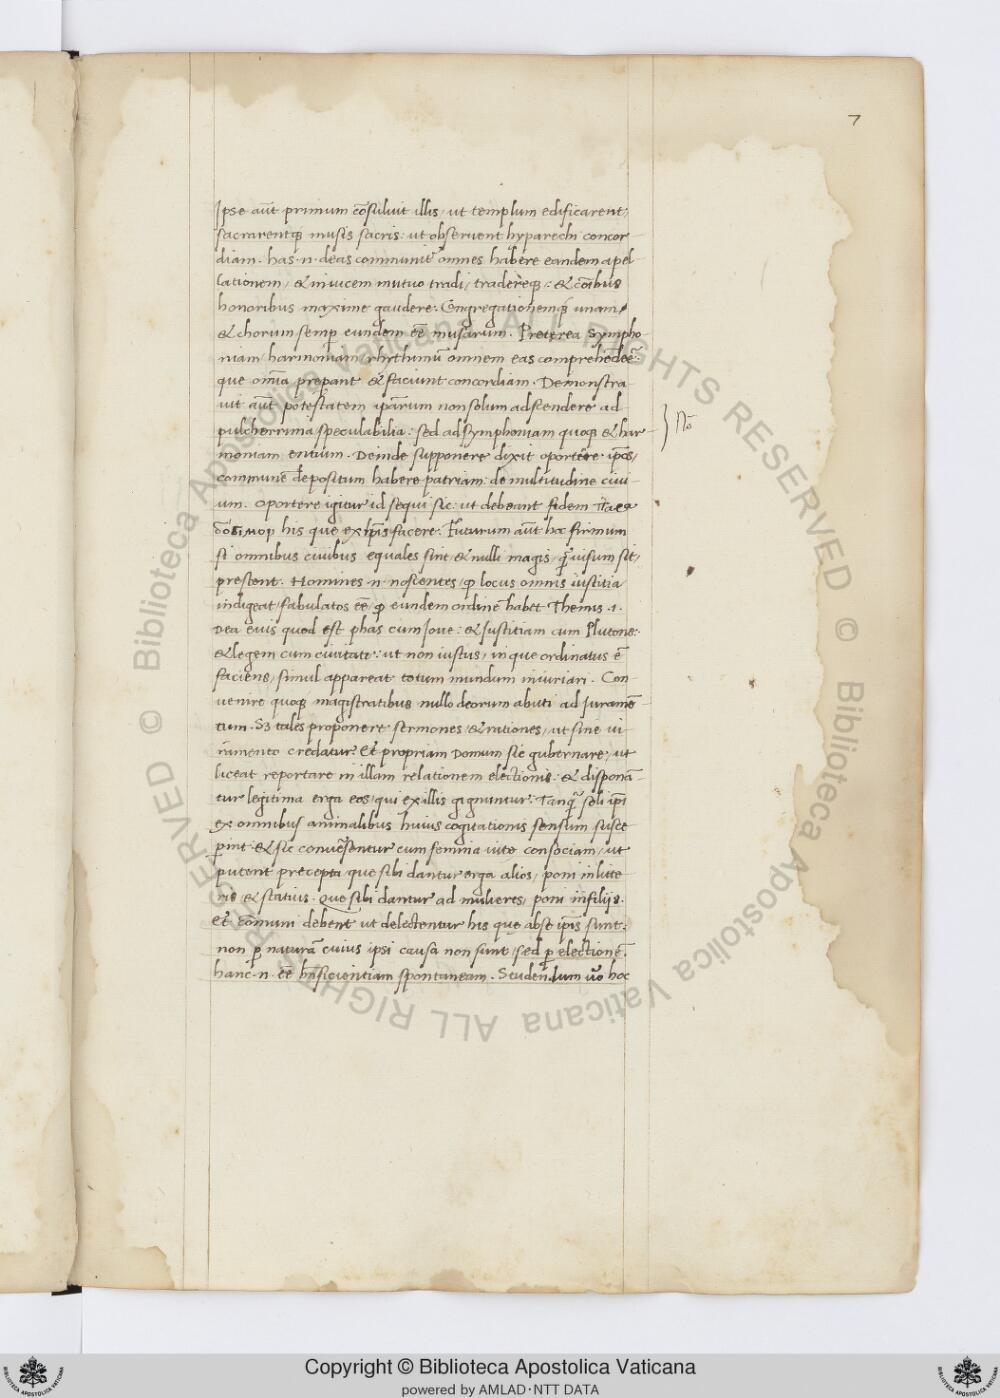 7
Ipse aūt primum cōsuluit illis, ut templum edificarent,
sacrarentq; musis sacris: ut observent hyparechi concor
diam. has .n. deas communiē omnes habere eandem apel
lationem, & invicem mutuo tradi, tradereq;: & cōibus
honoribus maxime gaudere. Congregationemq; unam,
& chorum semp eundem eē musarum. Preterea Sympho
niam, harmoniam, rhythmū omnem eas comprehēdeē:
que omīa prepant & faciunt concordiam. Demonstra
vit aūt potestatem ipārum non solum adscendere ad
pulcherrima speculabilia: sed ad symphoniam quoq; & har
moniam entium. Deinde supponere dixit oportere ipōs,
Nō
communē depositum habere patriam: de multitudine civi
um. oportere igitur id sequi sic: ut debeant fidem
his que ex ipīs facere. Futurum aūt hoc firmum
si omnibus civibus equales sint, & nulli magis, q̄ visum sit,
prestent. Homines .n. noscentes, ꝙ locus omnis iustitia
indigeat, fabulatos eē ꝙ eundem ordinē habet Themis .i.
Dea eius quod est phas cum Jove: & Justitiam cum Plutone:
& legem cum civitate: ut non iustus, in que ordinatus ē
faciens, simul appareat totum mundum iniuriari. Con
venire quoq; magistratibus nullo deorum abuti ad Juramē
tum. Sꝫ tales proponere sermones, & rationes, ut sine iu
ramento credatur. Et propriam Domum sic gubernare, ut
liceat reportare in illam relationem electionis: & disponā
tur legitima erga eos, qui ex illis gignuntur. Tanq̄ soli ipī
ex omnibus animalibus huius cognationis sensum susce
perint: & sic conversentur cum femina vite consociam, ut
putent precepta, que sibi dantur erga alios, poni in litte
ris & statius. Que sibi dantur ad mulieres, poni in filijs.
Et cōmuni debent ut delectentur his que abse ipīs sunt:
non p naturā cuius ipsi causa non sunt, sed p electionē.
hanc .n. eē bn̄ficientiam spontaneam. Studendum vō hoc
Copyright © Biblioteca Apostolica Vaticana
powered by AMLAD・NTT DATA
© Biblioteca Apostolica Vaticana ALL RIGHTS RESERVED
© Biblioteca Apostolica Vaticana ALL RIGHTS RESERVED
BIBLIOTECA APOSTOLICA VATICANA
BIBLIOTECA APOSTOLICA VATICANA